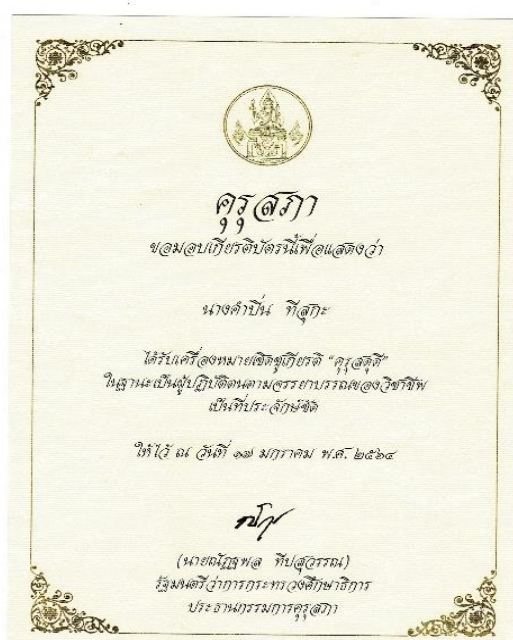 คุรุสภา
ขอมอบเกียรติบัตรนี้เพื่อแสดงว่า
นางคำปิ่น ทีสุกะ
ได้รับเครื่องหมายเชิดชูเกียรติ “คุรุสดุดี”
ในฐานะเป็นผู้ปฏิบัติตนตามจรรยาบรรณของวิชาชีพ
เป็นที่ประจักษ์ชัด
ให้ไว้ ณ วันที่ ๑๗ มกราคม พ.ศ. ๒๕๖๔
(นายณัฏฐพล ทีปสุวรรณ)
รัฐมนตรีว่าการกระทรวงศึกษาธิการ
ประธานกรรมการคุรุสภา